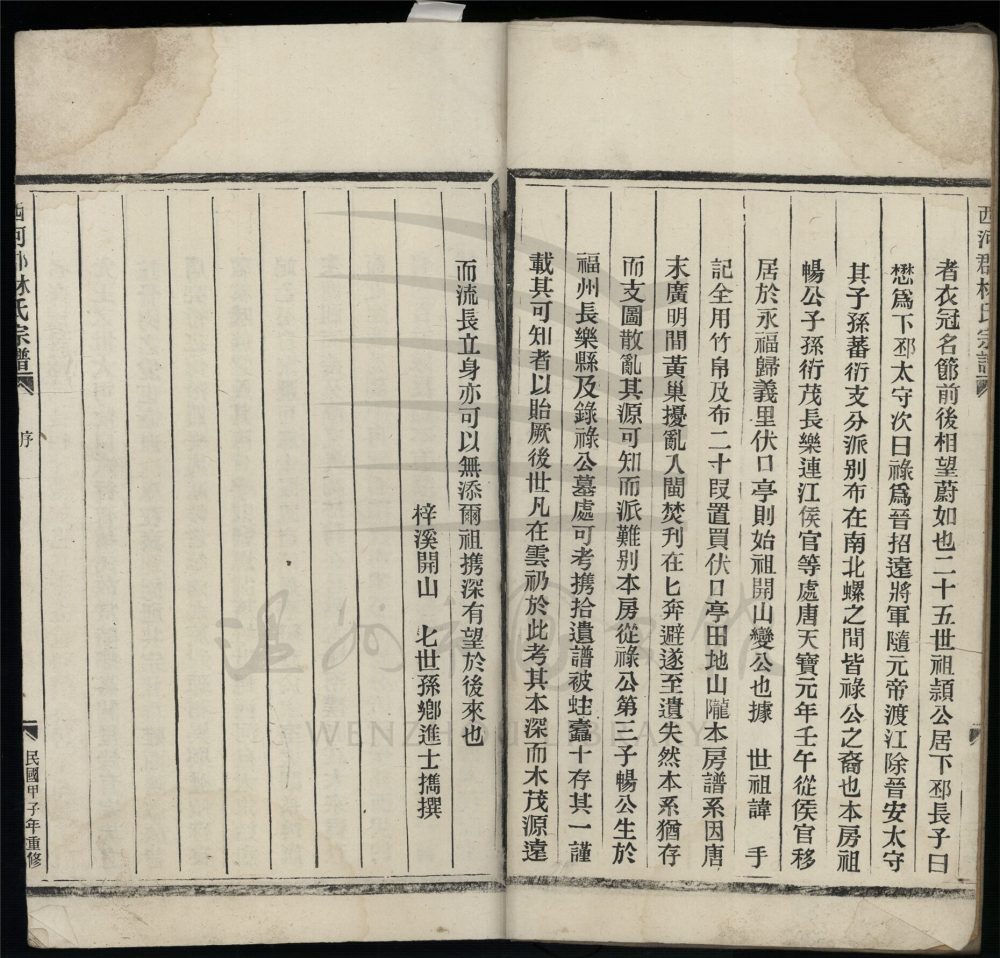 西河郡林氏宗譜
者衣冠名節前後相望蔚如也二十五世祖頴公居下邳長子曰
懋爲下邳太守次曰祿爲晉招遠將軍隨元帝渡江除晉安太守
其子孫蕃衍支分派別布在南北螺之間皆祿公之裔也本房祖
暢公子孫衍茂長樂連江侯官等處唐天寶元年壬午從侯官移
居於永福歸義里伏口亭則始祖開山變公也據 世祖諱 手
記全用竹帛及布二十叚置買伏口亭田地山隴本房譜系因唐
末廣明間黃巢擾亂入閩焚刋在匕奔避遂至遺失然本系猶存
而支圖散亂其源可知而派難別本房從祿公第三子暢公生於
福州長樂縣及錄祿公墓處可考携拾遺譜被蛀蠧十存其一謹
載其可知者以貽厥後世凡在雲礽於此考其本深而木茂源遠
而流長立身亦可以無添爾祖携深有望於後來也
梓溪開山 七世孫鄉進士擕撰
西河郡林氏宗譜
序
民國甲子年重修
WENZHOU LIBRARY